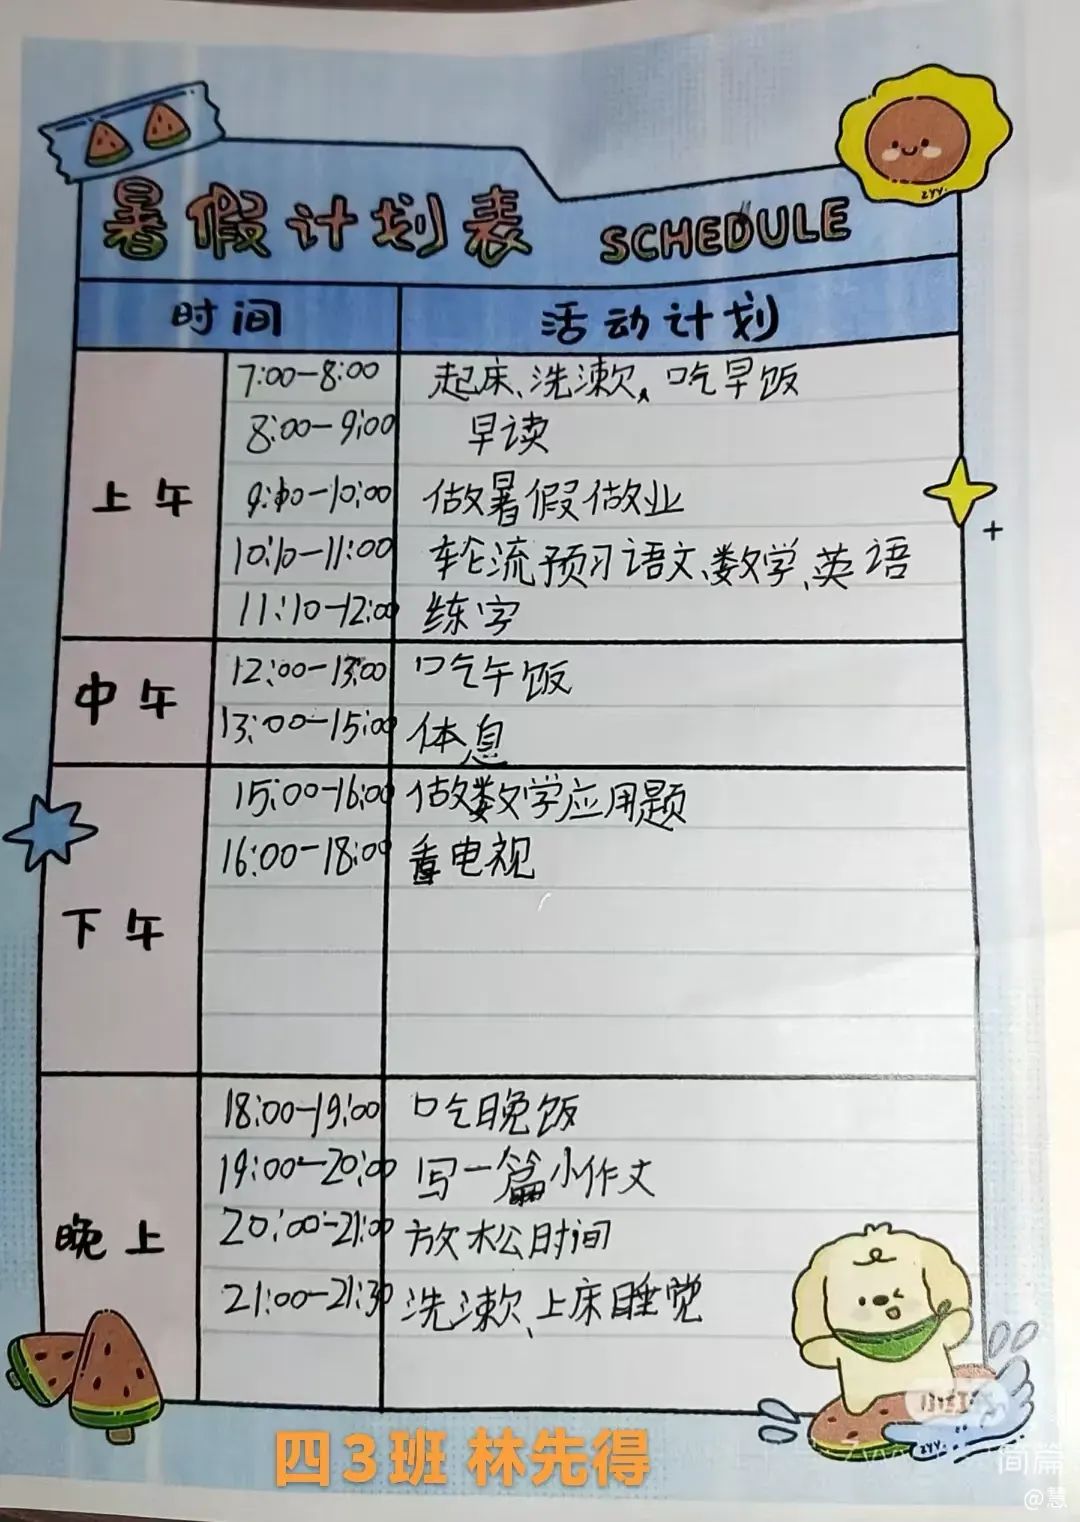 暑假计划表 SCHEDULE
时间 活动计划
上午
7:00-8:00 起床、洗漱、吃早饭
8:00-9:00 早读
9:10-10:00 做暑假做业
10:10-11:00 轮流预习语文、数学、英语
11:10-12:00 练字
中午
12:00-13:00 吃午饭
13:00-15:00 体息
下午
15:00-16:00 做数学应用题
16:00-18:00 看电视
晚上
18:00-19:00 吃晚饭
19:00-20:00 写一篇小作文
20:00-21:00 放松时间
21:00-21:30 洗漱、上床睡觉
ZYY.
ZYY.
四3班 林先得
简篇
@慧